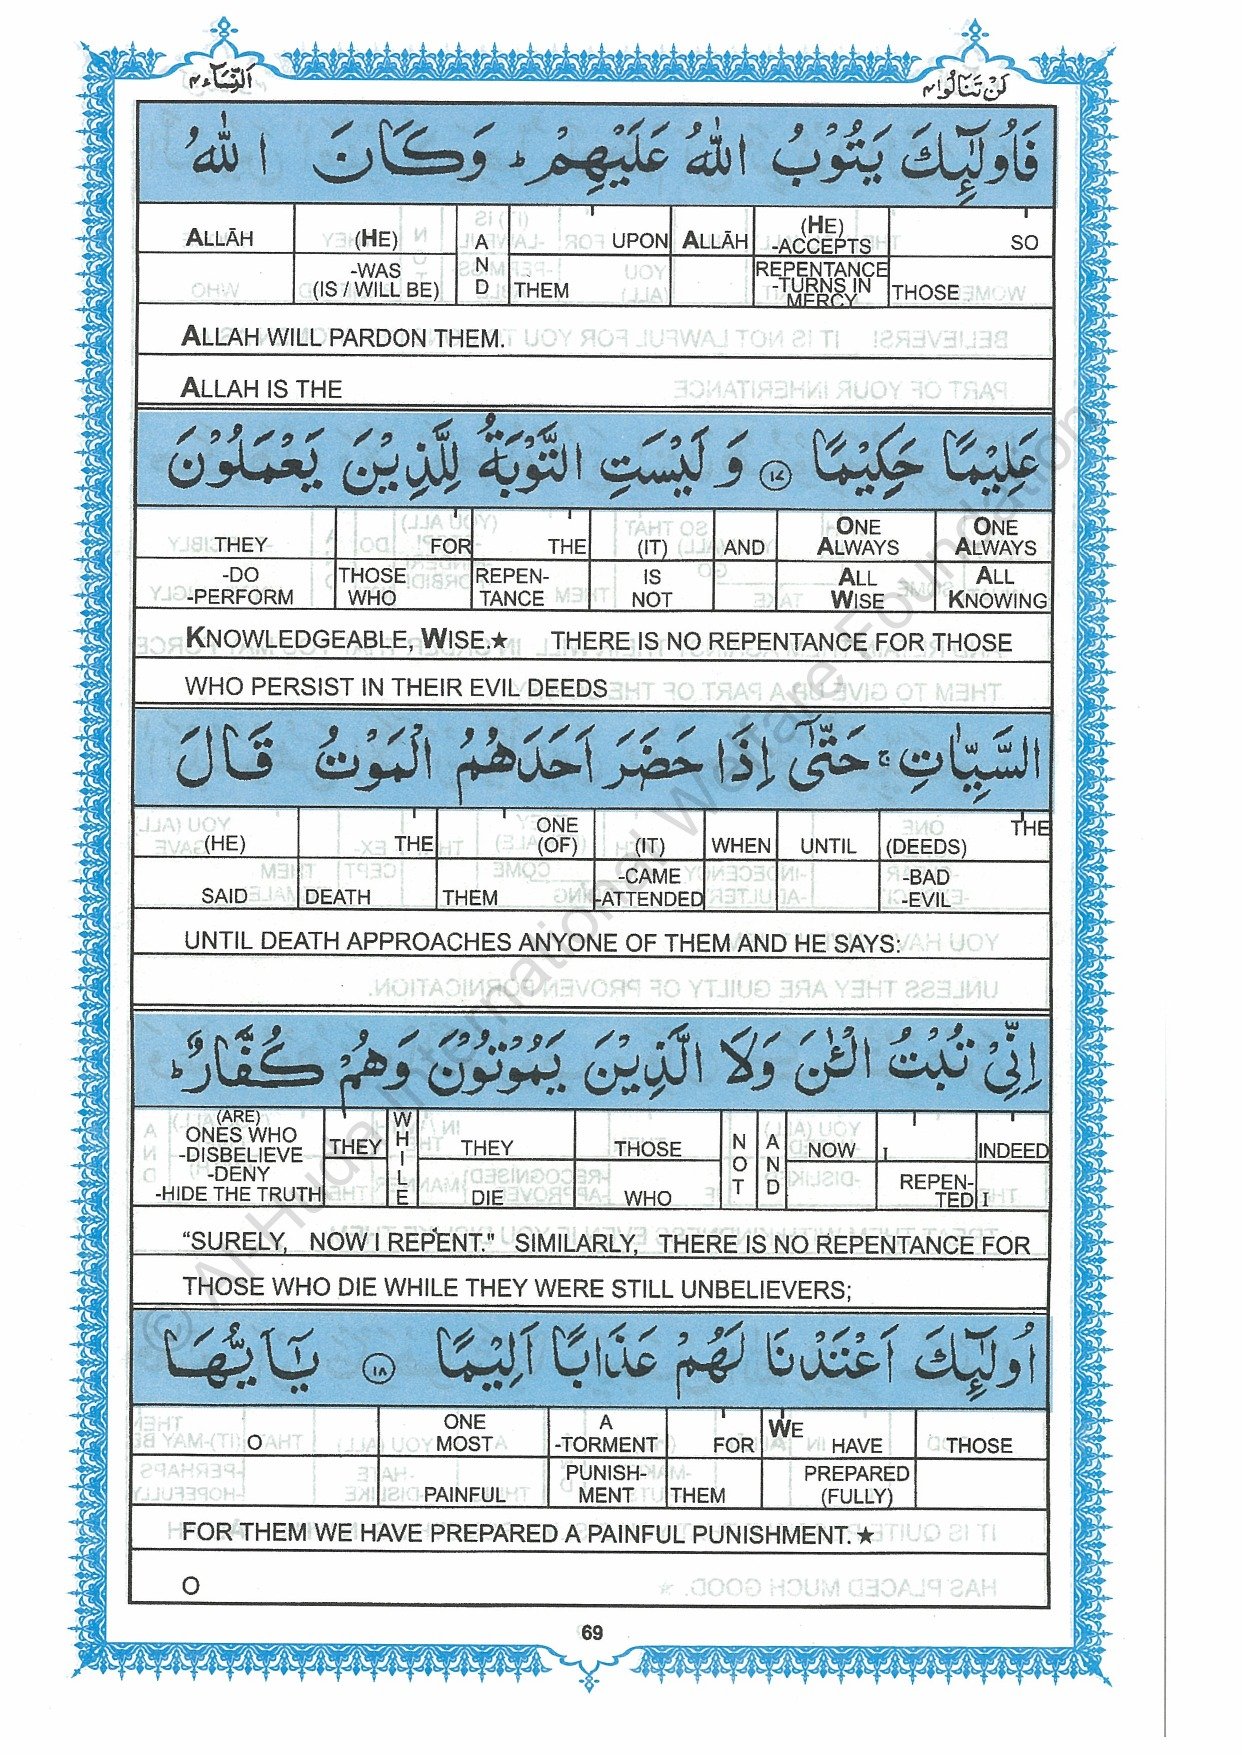 النِّسَآء ٤
لَنْ تَنَالُوا ٤
فَاُولٰٓئِكَ يَتُوْبُ اللّٰهُ عَلَيْهِمْ ؕ وَكَانَ اللّٰهُ
ALLĀH (HE) AND UPON ALLĀH (HE) -ACCEPTS SO
-WAS (IS / WILL BE) THEM REPENTANCE -TURNS IN MERCY THOSE
ALLAH WILL PARDON THEM.
ALLAH IS THE
عَلِيْمًا حَكِيْمًا ۝١٧ وَ لَيْسَتِ التَّوْبَةُ لِلَّذِيْنَ يَعْمَلُوْنَ
THEY FOR THE (IT) AND ONE ALWAYS ONE ALWAYS
-DO -PERFORM THOSE WHO REPEN- TANCE IS NOT ALL WISE ALL KNOWING
KNOWLEDGEABLE, WISE.★ THERE IS NO REPENTANCE FOR THOSE
WHO PERSIST IN THEIR EVIL DEEDS
السَّيِّاٰتِ ۚ حَتّٰٓى اِذَا حَضَرَ اَحَدَهُمُ الْمَوْتُ قَالَ
(HE) THE ONE (OF) (IT) WHEN UNTIL (DEEDS) THE
SAID DEATH THEM -CAME -ATTENDED -BAD -EVIL
UNTIL DEATH APPROACHES ANYONE OF THEM AND HE SAYS:
اِنِّىْ تُبْتُ الْـٰٔنَ وَلَا الَّذِيْنَ يَمُوْتُوْنَ وَهُمْ كُفَّارٌ ؕ
(ARE) ONES WHO -DISBELIEVE -DENY -HIDE THE TRUTH THEY WHILE THEY THOSE NOT AND NOW I INDEED
DIE WHO REPEN- TED I
“SURELY, NOW I REPENT." SIMILARLY, THERE IS NO REPENTANCE FOR
THOSE WHO DIE WHILE THEY WERE STILL UNBELIEVERS;
اُولٰٓئِكَ اَعْتَدْنَا لَهُمْ عَذَابًا اَلِيْمًا ۝١٨ يٰٓاَيُّهَا
O ONE MOST A -TORMENT FOR WE HAVE THOSE
PAINFUL PUNISH- MENT THEM PREPARED (FULLY)
FOR THEM WE HAVE PREPARED A PAINFUL PUNISHMENT. ★
O
69
© Al Huda International Welfare Foundation